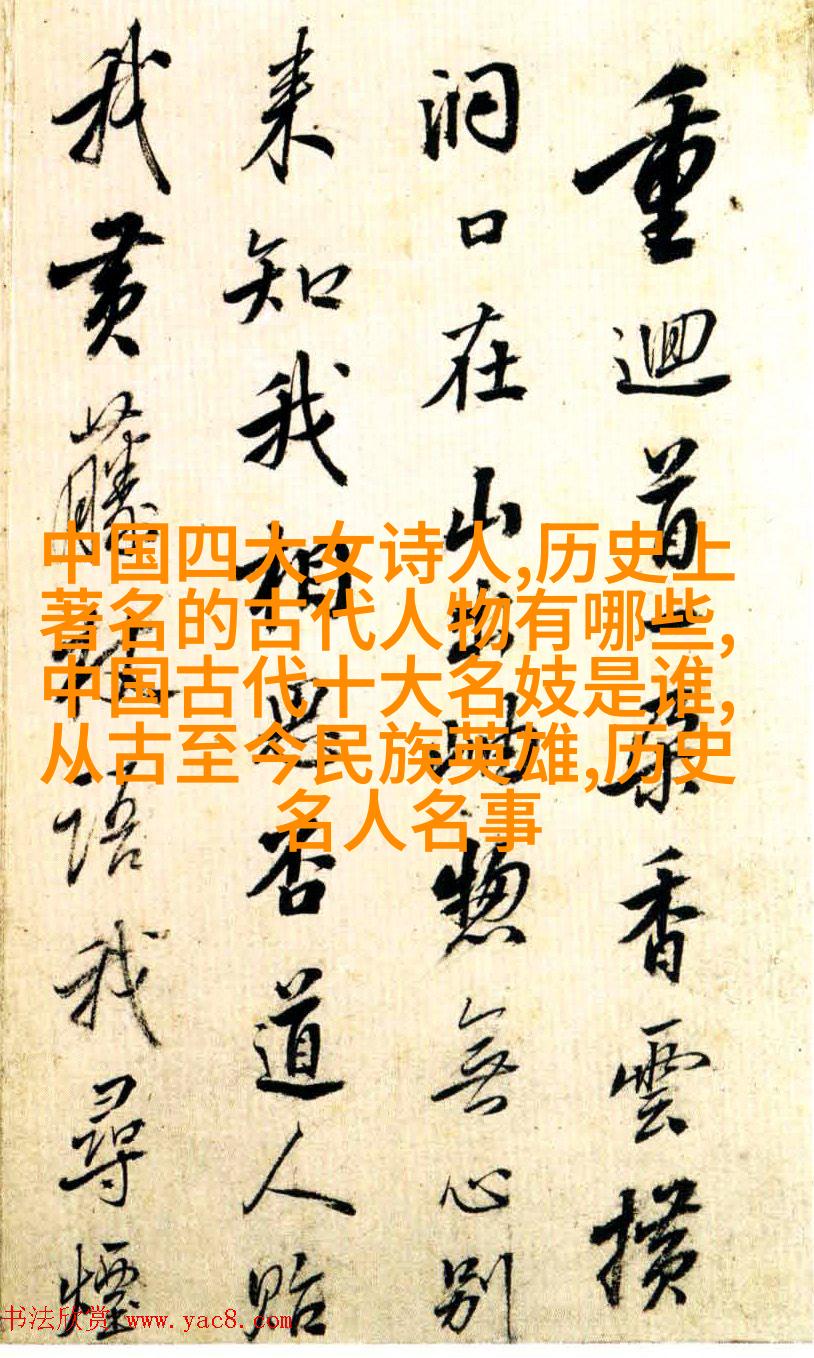 重迴首一朵香雲
洞口在山惣無心別
来知我相思否道人貽
我黄藤語我尋煙
中国四大女诗人,历史上
著名的古代人物有哪些,
中国古代十大名妓是谁,
从古至今民族英雄,历史
名人名事
书法欣赏 www.yac8.com